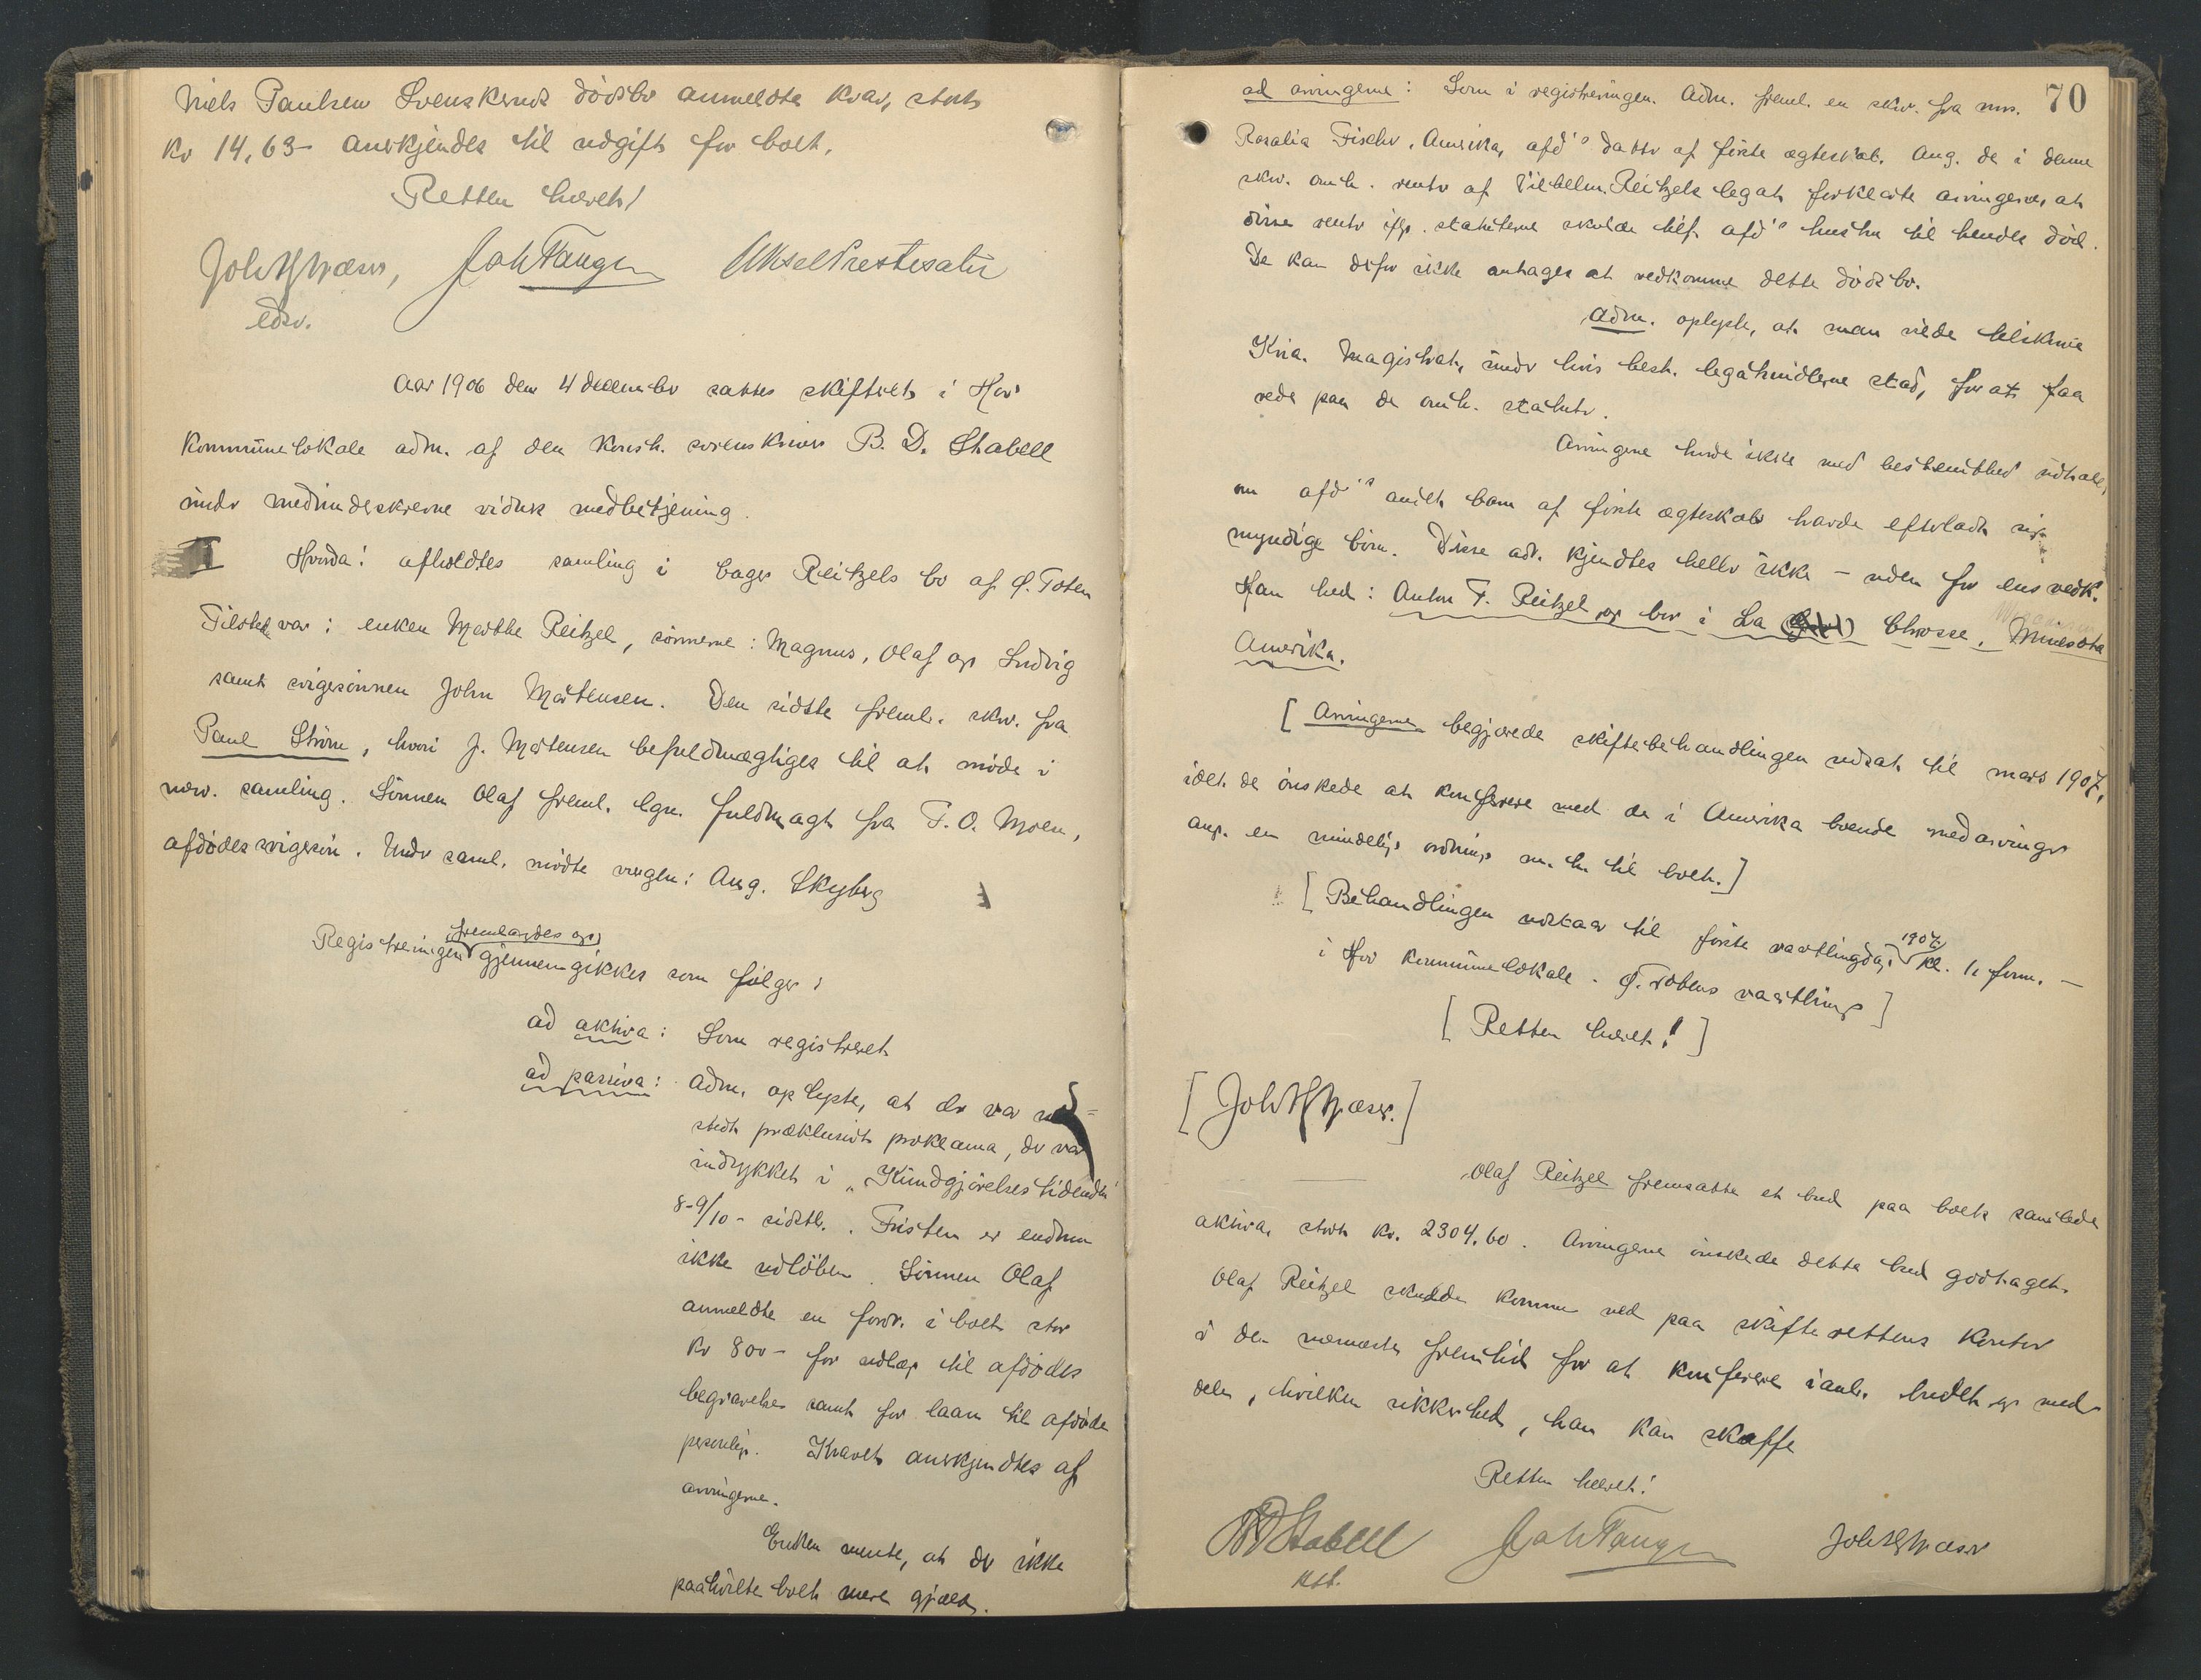 Niels Paulsen Svenskerud dødsbo anmeldte krav, stort
kr 14,63 – anerkjendes til udgift for boet.
Retten hævet!
Joh Tangen Aksel Prestesæter
edsv.
Aar 1906 den 4 december sattes skifteret i Hov
kommunelokale adm. af den konst. sorenskriver B. D. Stabell
under medunderskrevne vidners medbetjening.
Hvorda: afholdtes samling i bager Reitzels bo af Ø. Toten
Tilstede var: enken Marthe Reitzel, sønnerne: Magnus, Olaf og Ludvig
samt svigersønnen John Mortensen. Den sidste freml. skr. fra
Paul Strøm, hvori J. Mortensen befuldmægtiges til at møde i
nærv. samling. Sønnen Olaf freml. lign. fuldmagt fra T. O. Moen,
afdødes svigersøn. Under saml. mødte vergen: Aug. Skyberg
fremlagdes og
Registreringen gjennemgikkes som følger:
ad aktiva: Som registreret
ad passiva: Adm. oplyste, at der var ud=
stedt præklusivt proklama, der var
indrykket i "Kundgjørelsestidende"
8-9/10 - sidstl. . Fristen er endnu
ikke udløben. Sønnen Olaf
anmeldte en fordr. i boet stor
kr 800 – for udlæg til afdødes
begravelse samt for laan til afdøde
personlig. Kravet anerkjendtes af
arvingerne.
Enken mente, at der ikke
paahvilte boet mere gjæld.
70
ad arvingerne: Som i registreringen. Adm. freml. en skr. fra mrs.
Rosalia Fischer, Amerika, afd's datter af første ægteskab. Ang. de i denne
skr. omh. renter af Vilhelm Reitzels legat forklarte arvingerne, at
disse renter ifg. statuterne skulde tilf. afd's hustru til hendes død.
De kan derfor ikke antages at vedkomme dette dødsbo.
Adm. oplyste, at man vilde tilskrive
Kria. Magistrat, under hvis best. legatmidlerne stod, for at faa
rede paa de omh. statuter.
Arvingerne turde ikke med bestemthed udtale,
om afd's andet barn af første ægteskab havde efterladt sig
myndige børn. Disse adr. kjendtes heller ikke – uden for ens vedk.
Han hed: Anton F. Reitzel og bor i La Chrosse, Minesota
Amerika.
[ Arvingerne begjærede skiftebehandlingen udsat til mars 1907,
idet de ønskede at konferere med de i Amerika boende medarvinger
ang. en mindelig ordning m. h. til boet.]
[ Behandlingen udstaar til første vaartingdag 1907 kl. 11 form. –
i Hov kommunelokale. Ø. Totens vaarthing ]
[ Retten hævet! ]
Olaf Reitzel fremsatte et bud paa boets samlede
aktiva, stort kr. 2304.60. Arvingerne ønskede dette bud godtaget.
Olaf Reitzel skulde komme ned paa skifterettens kontor
i den nærmeste fremtid for at konferere i anl. budet og med-
dele, hvilken sikkerhed, han kan skaffe
Retten hævet!
BDStabell Joh Tangen
kst.